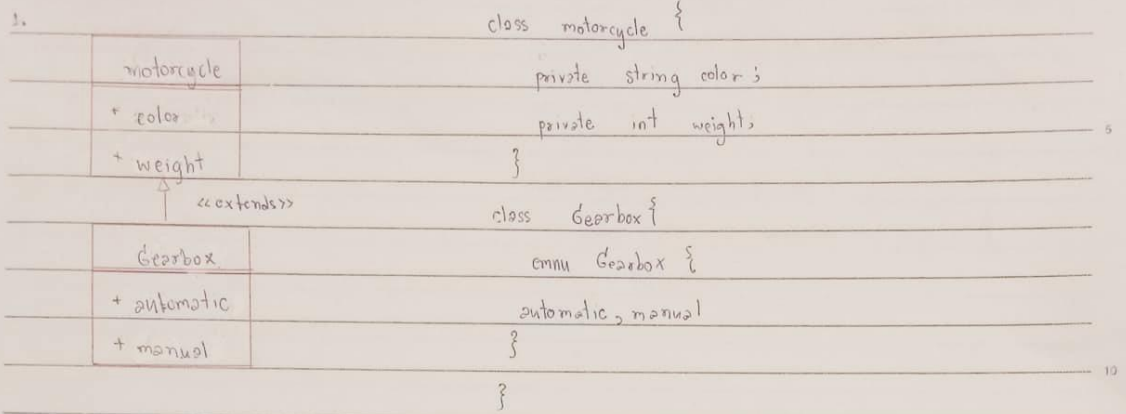 1.
motorcycle
+ color
+ weight
<<extends>>
Gearbox
+ automatic
+ manual
class motorcycle {
private string color;
private int weight;
}
class Gearbox {
emnu Gearbox {
automatic, manual
}
}
5
10